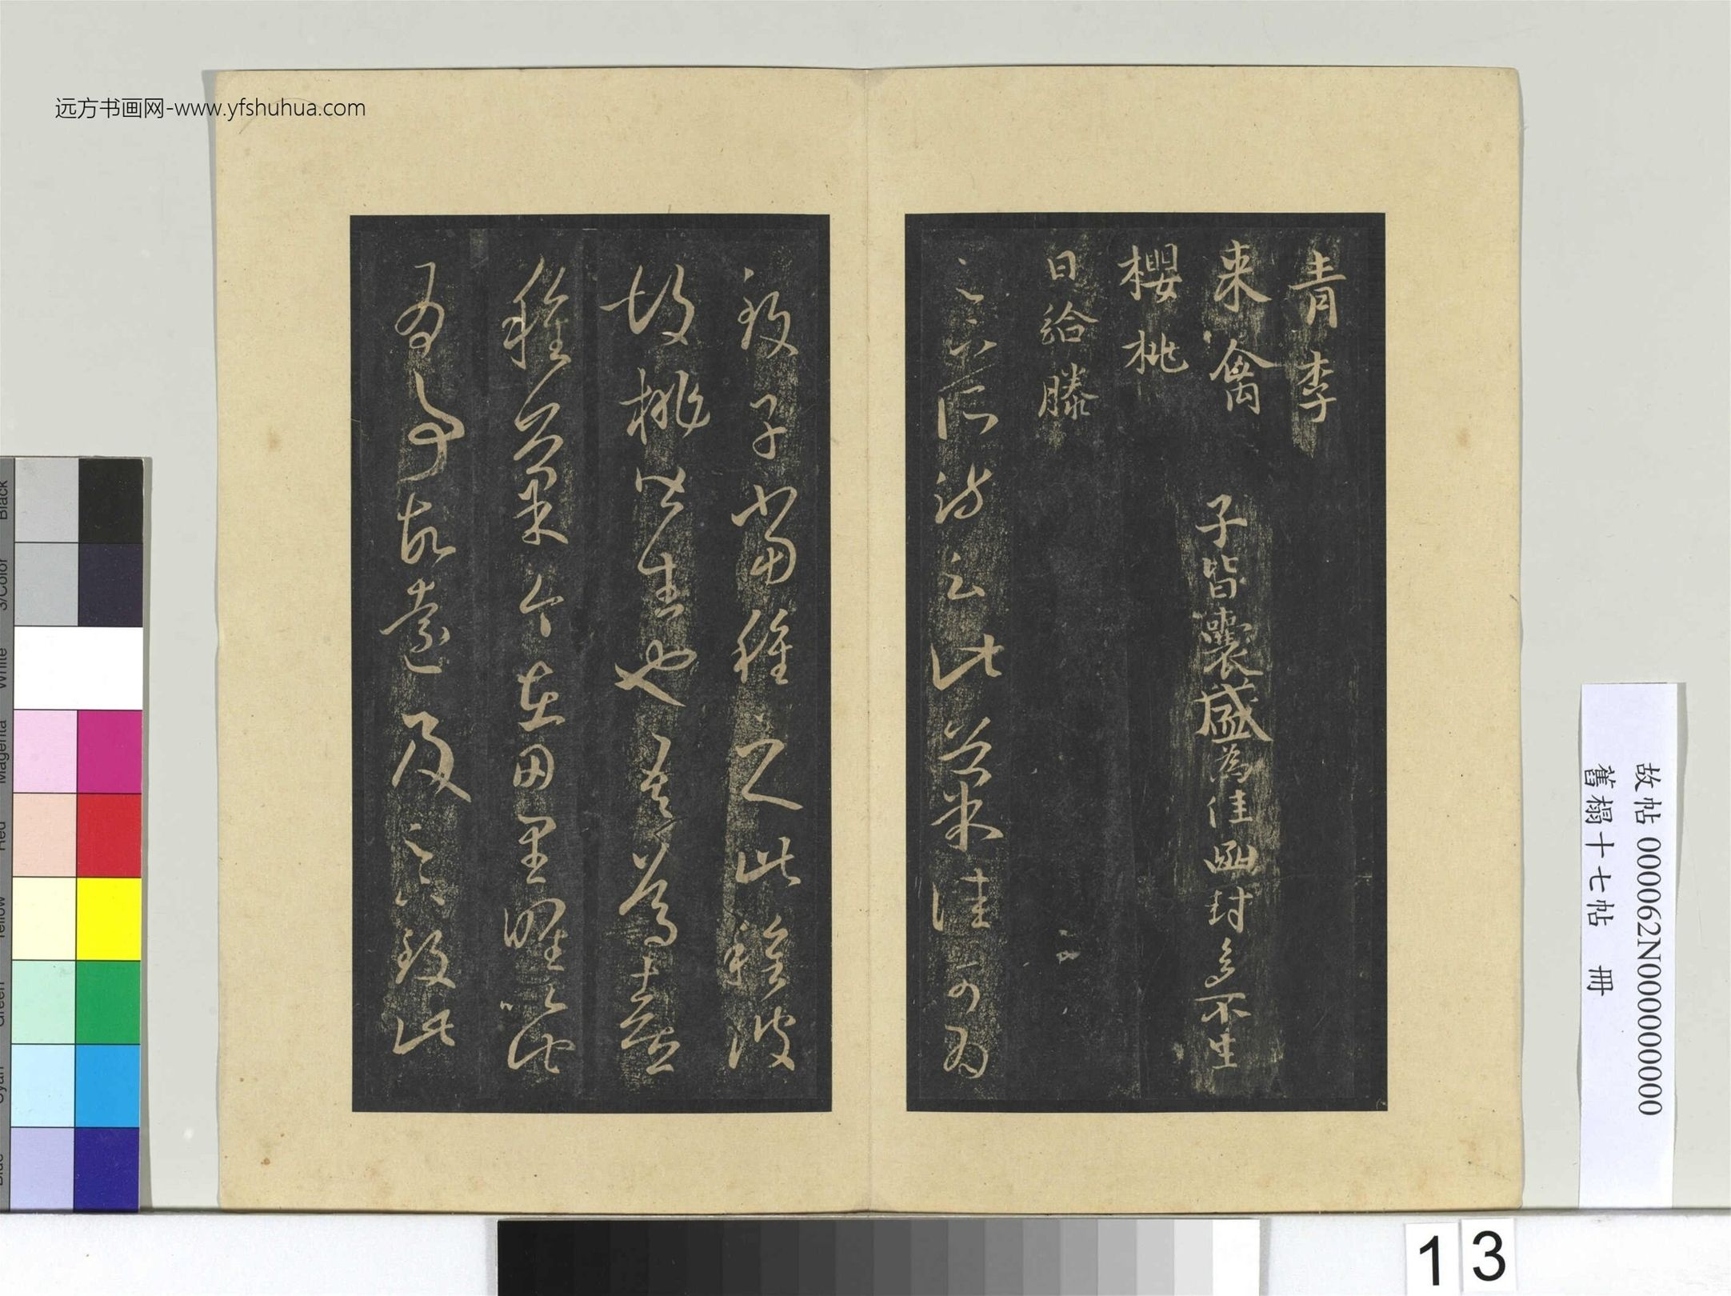 远方书画网-www.yfshuhua.com
青李
来禽
櫻桃
日給滕
子皆囊盛為佳函封多不生
足下所疏云此菓佳可為
致子當種之此種彼
胡桃皆生也吾篤喜
種菓今在田里唯以此
為事故遠及足下致此
故帖 000062N000000000
舊榻十七帖 冊
13
Black
3/Color
White
Magenta
Red
Yellow
Green
Cyan
Blue